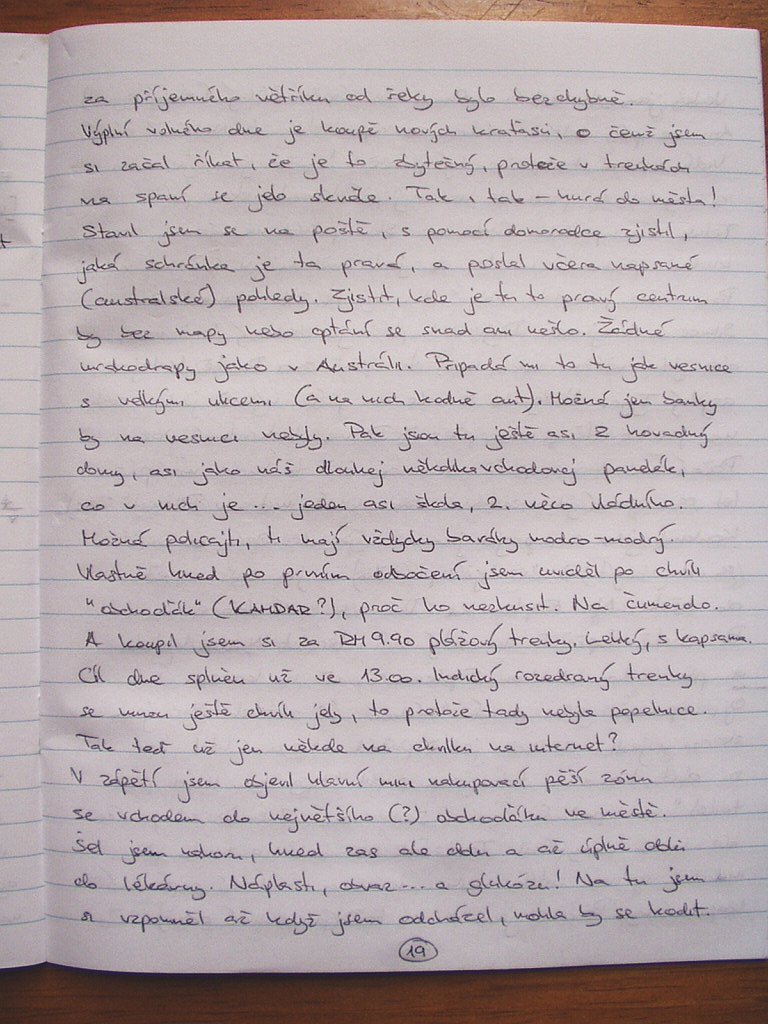 za příjemného větříku od řeky bylo bezchybné.
Výplní volného dne je koupě nových kraťasů, o čemž jsem
si začal říkat, že je to zbytečný, protože v trenkách
na spaní se jde skvěle. Tak, tak - hurá do města!
Stavil jsem se na poště, s pomocí domorodce zjistil,
jaká schránka je ta pravá, a poslal včera napsané
(australské) pohledy. Zjistit, kde je tu to pravý centrum
by bez mapy nebo optání se snad ani nešlo. Žádné
mrakodrapy jako v Austrálii. Připadá mi to tu jak vesnice
s velkými ulicemi (a na nich hodně aut). Možná jen banky
by na vesnici nebyly. Pak jsou tu ještě asi 2 hovadný
domy, asi jako náš dlouhej několikavchodovej panelák,
co v nich je ... jeden asi škola, 2. něco vládního.
Možná policajti, ti mají vždycky baráky modro-modrý.
Vlastně hned po prvním odbočení jsem uviděl po chvíli
"obchoďák" (KAMDAR?), proč ho nezkusit. Na čumendo.
A koupil jsem si za RM 9.90 plážový trenky. Lehký, s kapsama.
Cíl dne splněn už ve 13.00. Indický rozedraný trenky
se mnou ještě chvíli jely, to protože tady nebyla popelnice.
Tak teď už jen někde na chvilku na internet?
V zápětí jsem objevil hlavní mini nakupovací pěší zónu
se vchodem do největšího (?) obchoďáku ve městě.
Šel jsem nahoru, hned zas ale dolů a až úplně dolů
do lékárny. Náplasti, obvaz ... a glukózu! Na tu jsem
si vzpomněl až když jsem odcházel, mohla by se hodit.
19